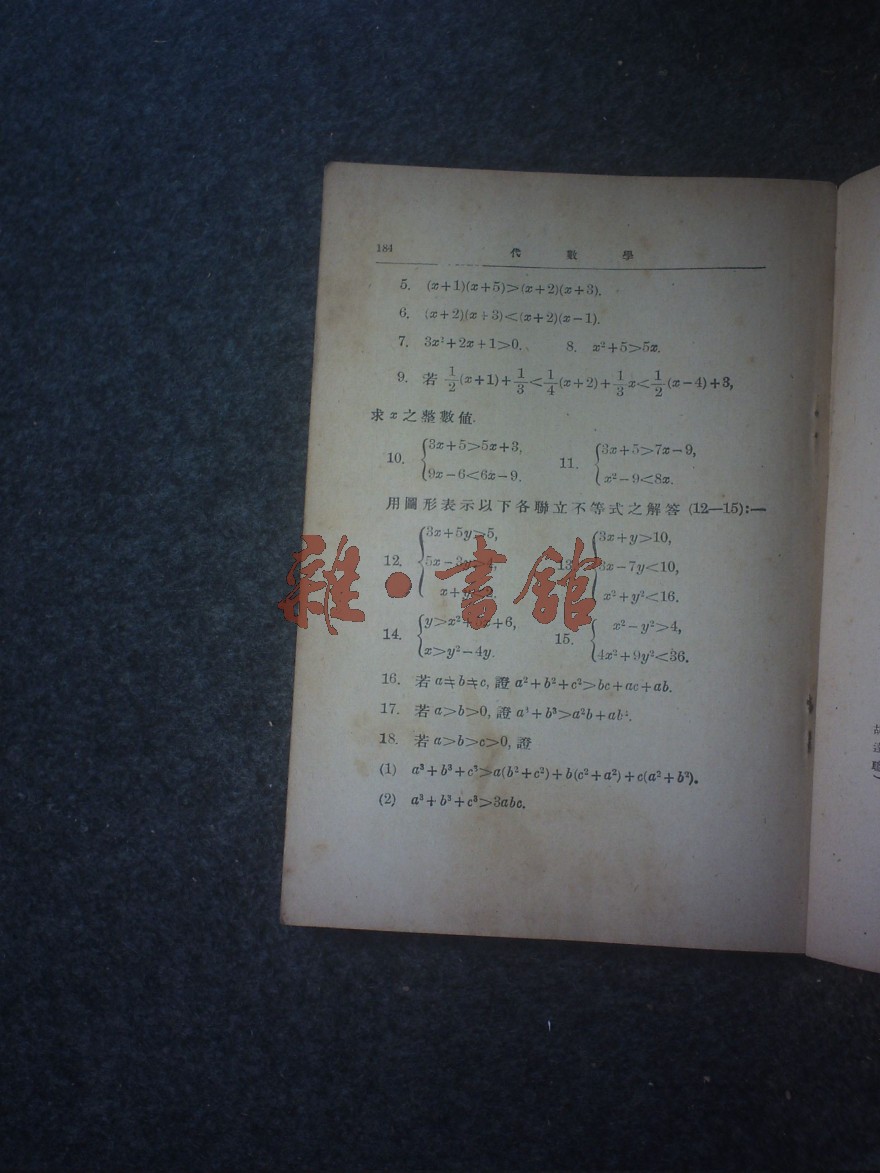 184
代數學
5. (x+1)(x+5)>(x+2)(x+3).
6. (x+2)(x+3)<(x+2)(x−1).
7. 3x²+2x+1>0. 8. x²+5>5x.
9. 若 1/2(x+1)+1/3<1/4(x+2)+1/3x<1/2(x−4)+3,
求x之整數値.
10. {3x+5>5x+3, 9x−6<6x−9. 11. {3x+5>7x−9, x²−9<8x.
用圖形表示以下各聯立不等式之解答(12—15):—
12. {3x+5y>5, 5x−3y 13. {3x+y>10, 3x−7y<10, x²+y²<16.
雜·書舘
14. {y>x² x+6, x>y²−4y. 15. {x²−y²>4, 4x²+9y²<36.
16. 若a≠b≠c,證a²+b²+c²>bc+ac+ab.
17. 若a>b>0,證a³+b³>a²b+ab².
18. 若a>b>c>0,證
(1) a³+b³+c³>a(b²+c²)+b(c²+a²)+c(a²+b²).
(2) a³+b³+c³>3abc.